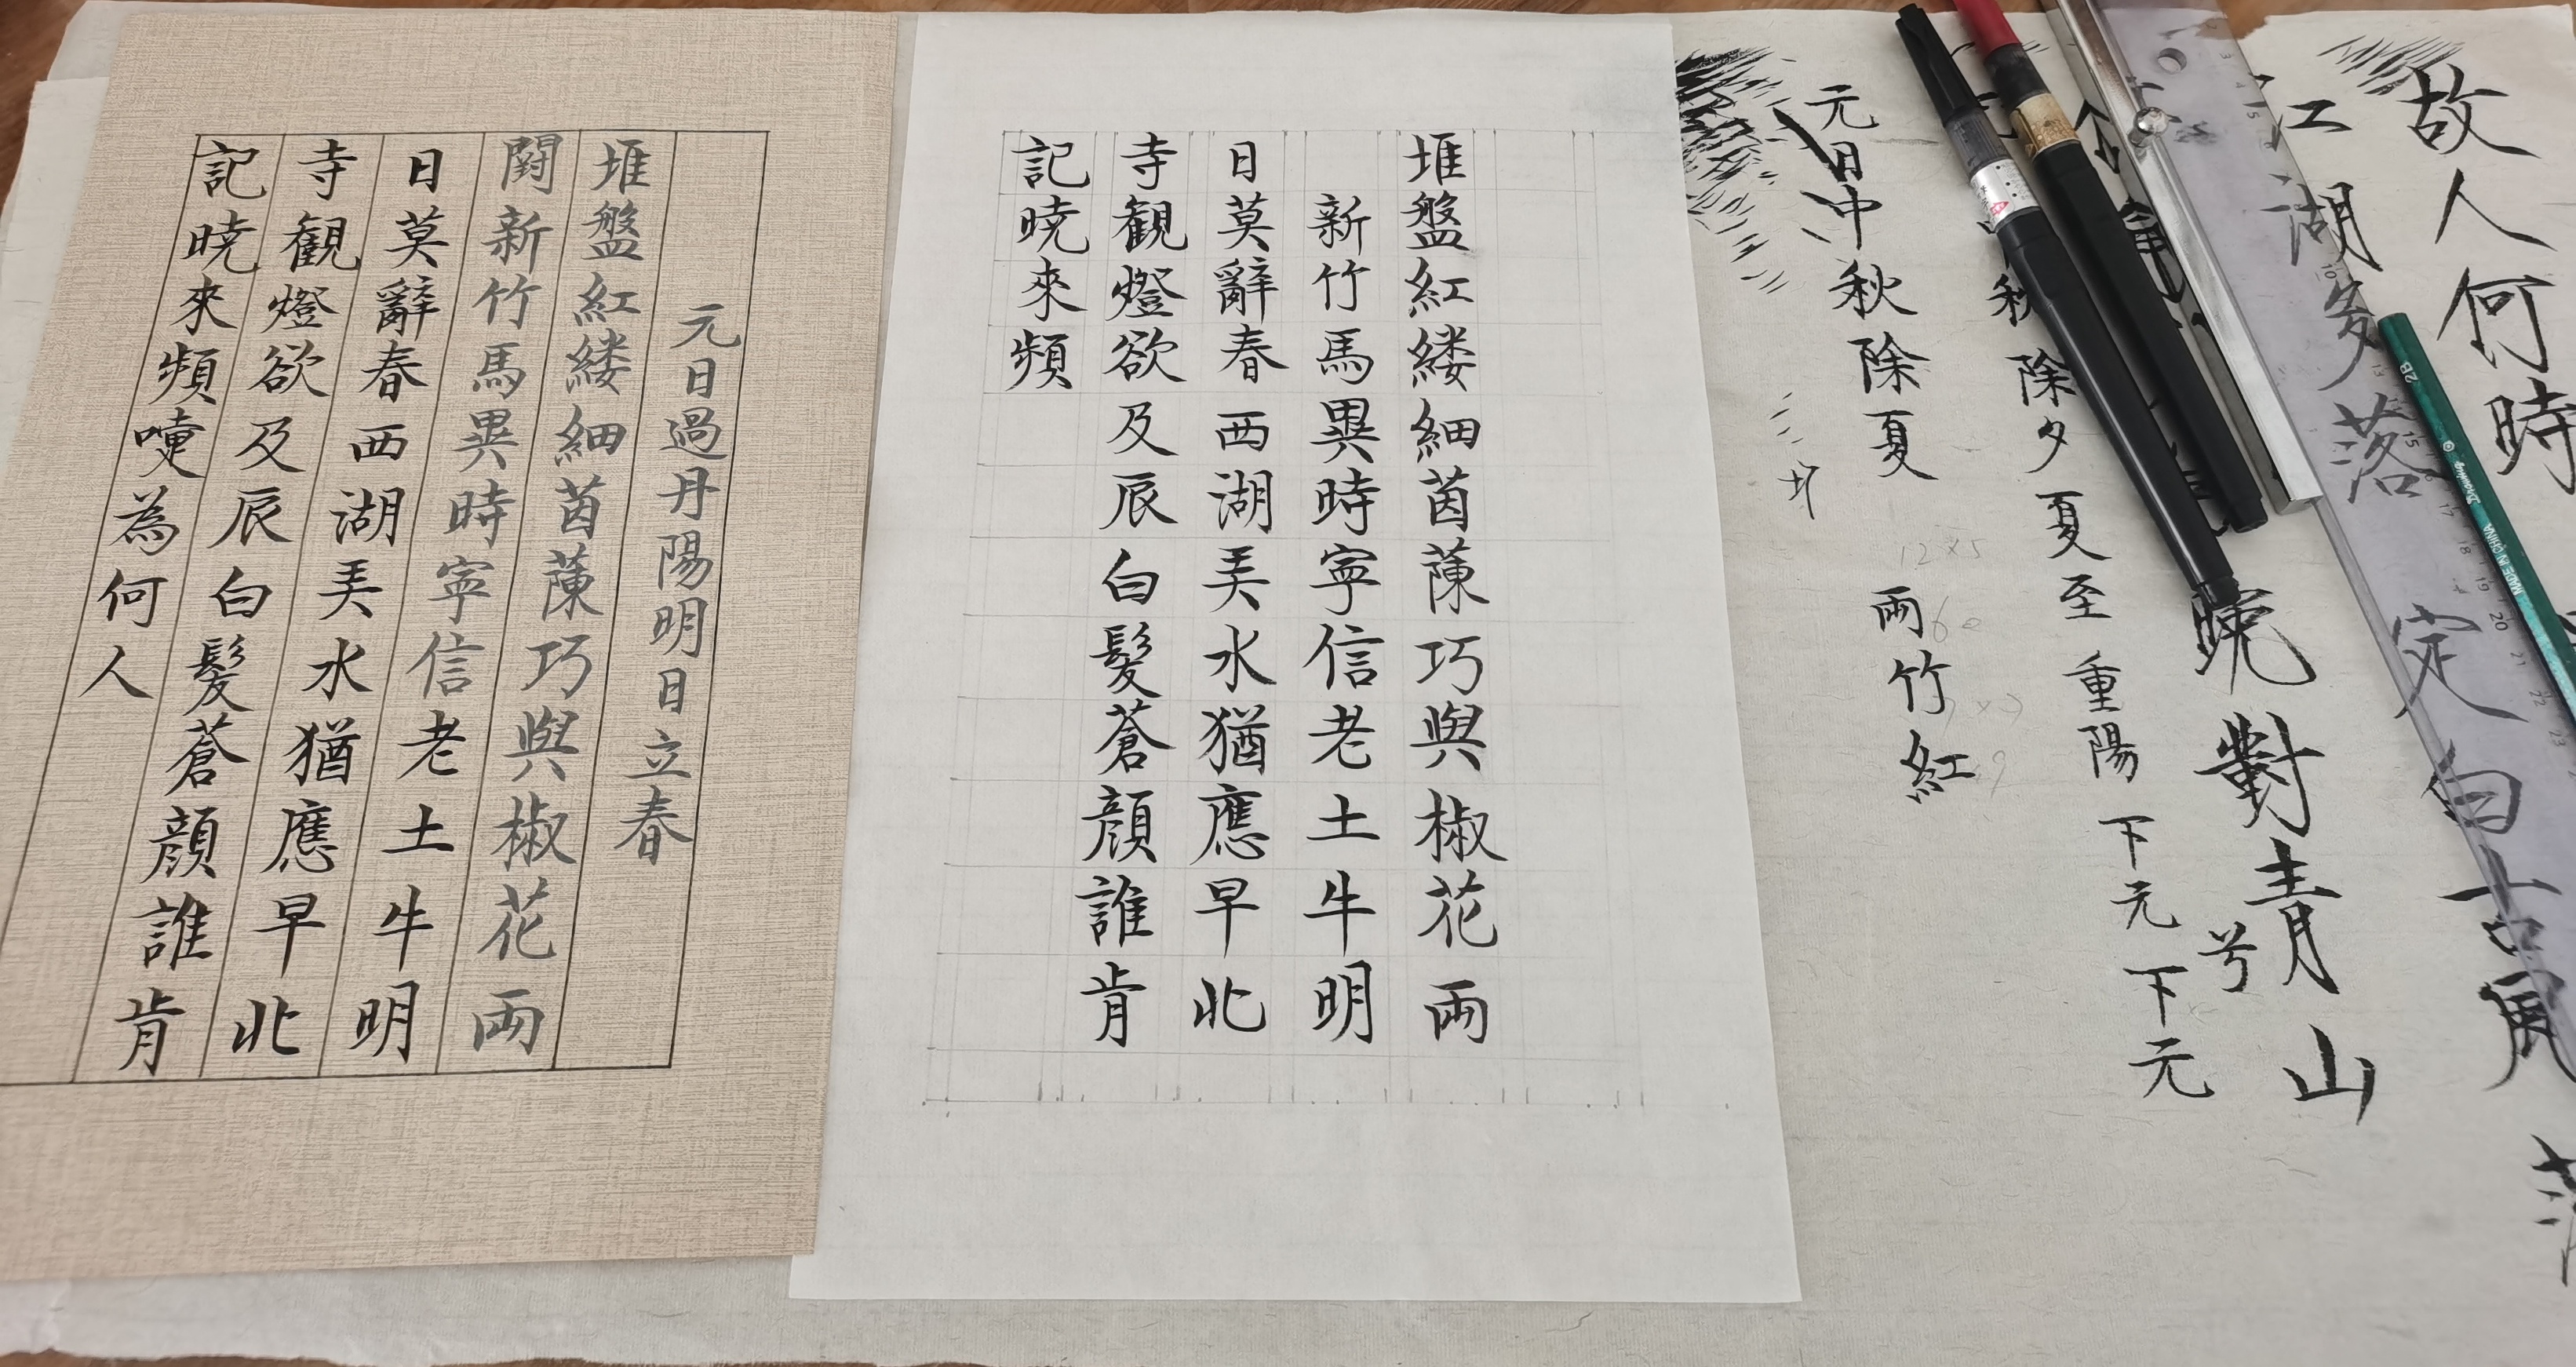 元日過丹陽明日立春
堆盤紅縷細茵蔯巧與椒花両
闘新竹馬異時寧信老土牛明
日莫辭春西湖弄水猶應早北
寺観燈欲及辰白髪蒼顔誰肯
記暁來頻嚏為何人
堆盤紅縷細茵蔯巧與椒花両
新竹馬異時寧信老土牛明
日莫辭春西湖弄水猶應早北
寺観燈欲及辰白髪蒼顔誰肯
記暁來頻
故人何時
江湖多落
定白
晚對青山
兮
秋除夕夏至重陽下元下元
元日中秋除夏
両竹紅
12×5
2B
MADE IN CHINA